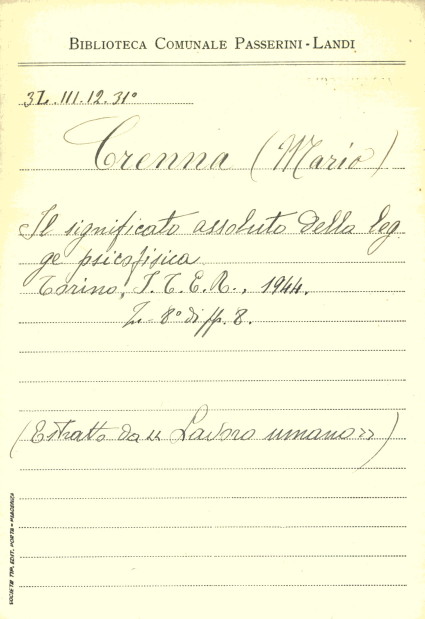 BIBLIOTECA COMUNALE PASSERINI-LANDI
3L.III.12.31°
Crenna (Mario)
Il significato assoluto della leg-
ge psicofisica
Torino, I.T.E.R., 1944.
8° di pp. 8.
(Estratto da « Lavoro umano »)
SOCIETÀ TIP. EDIT. PORTA - PIACENZA